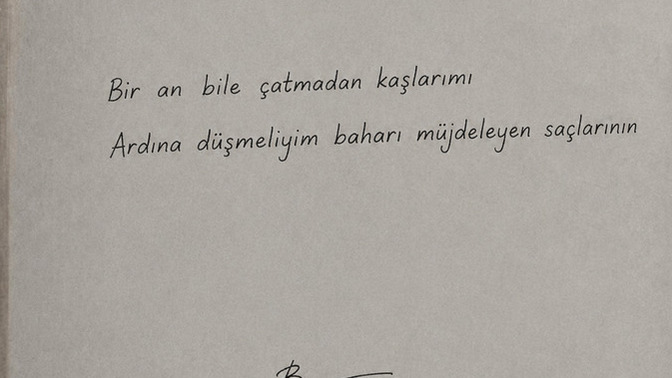 Bir an bile çatmadan kaşlarımı
Ardına düşmeliyim baharı müjdeleyen saçlarının